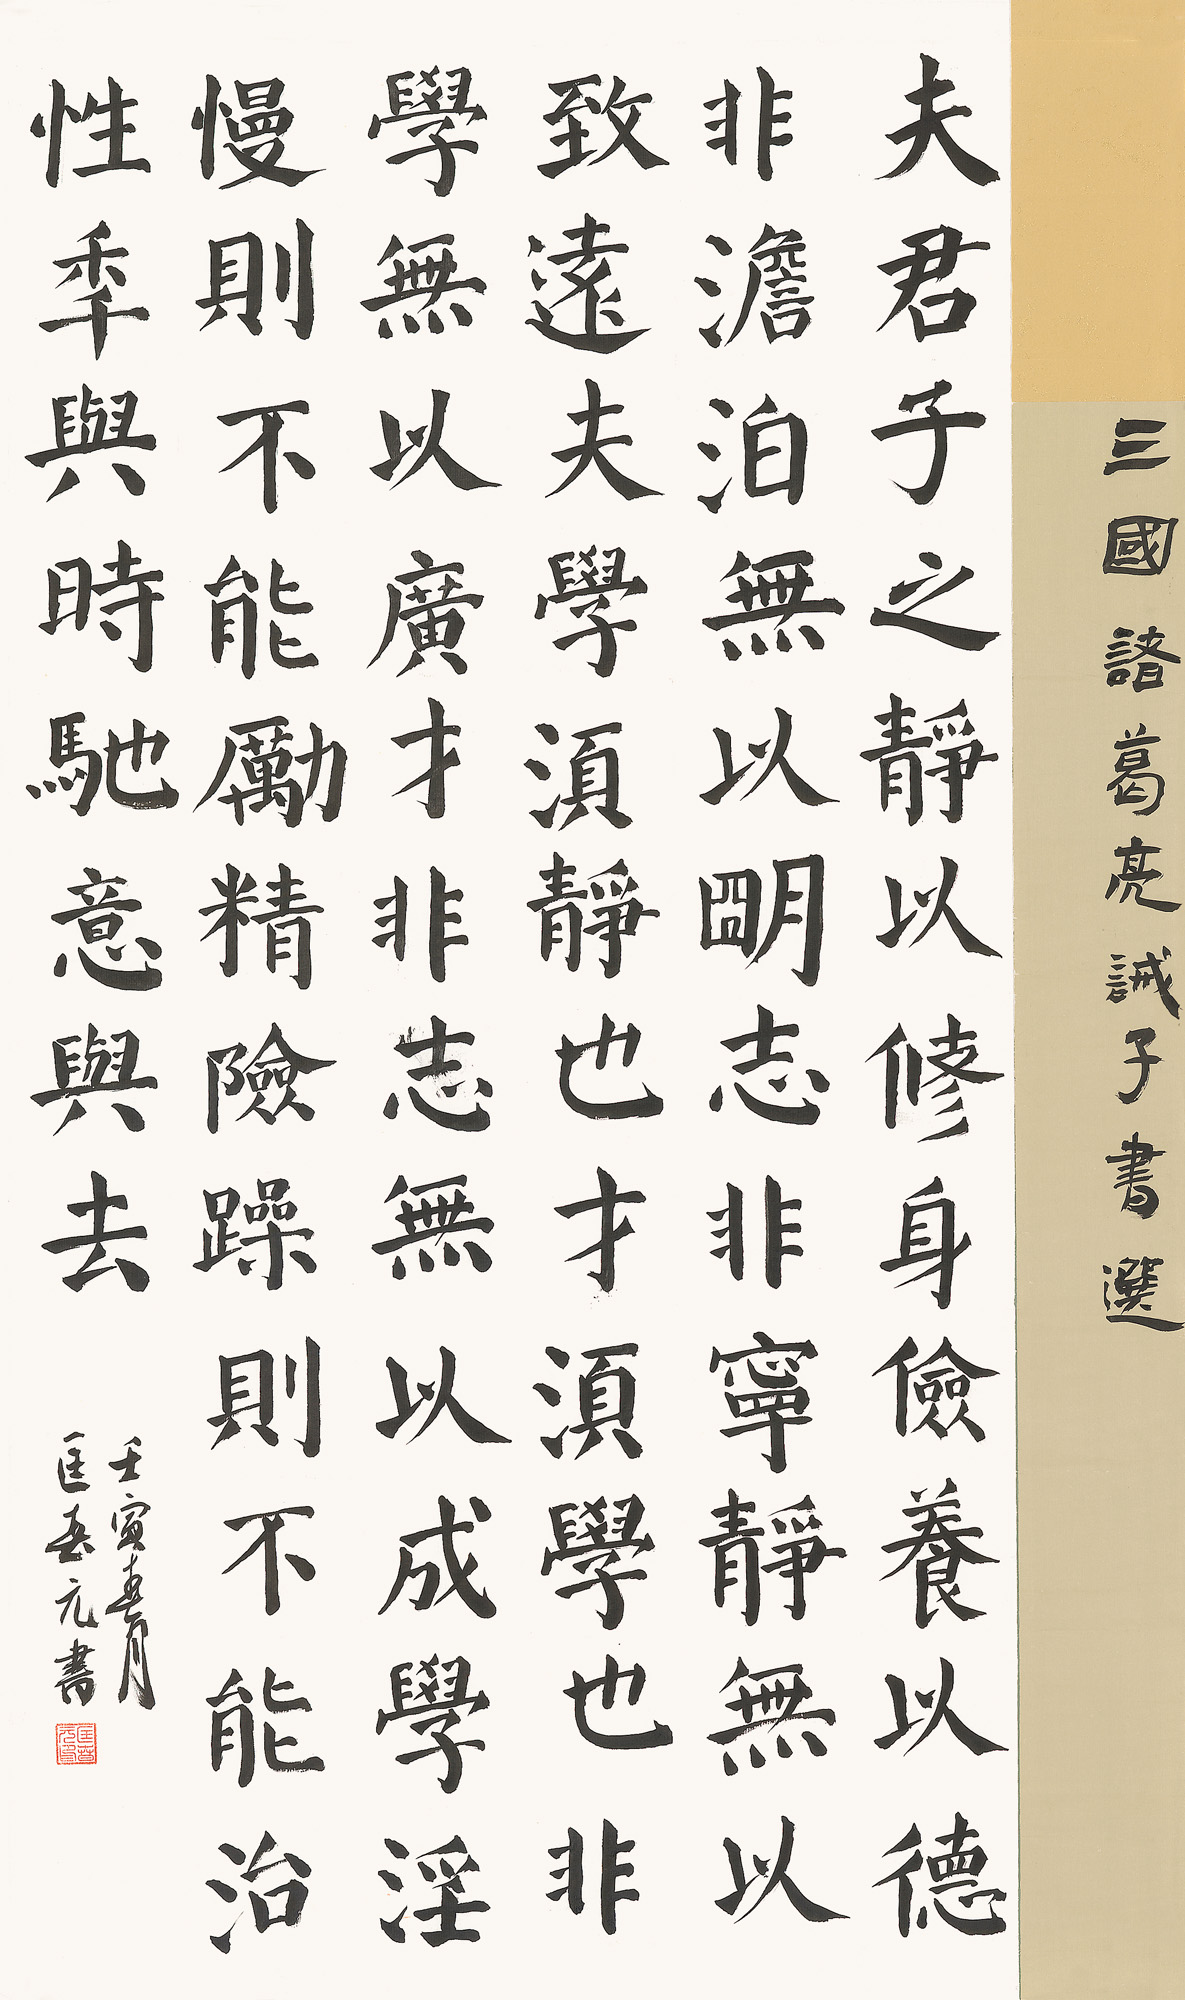 三國諸葛亮誡子書選
夫君子之靜以修身儉養以德
非澹泊無以朙志非寧靜無以
致遠夫學須靜也才須學也非
學無以廣才非志無以成學淫
慢則不能勵精險躁則不能治
性秊與時馳意與去
壬寅春月
匡春元書